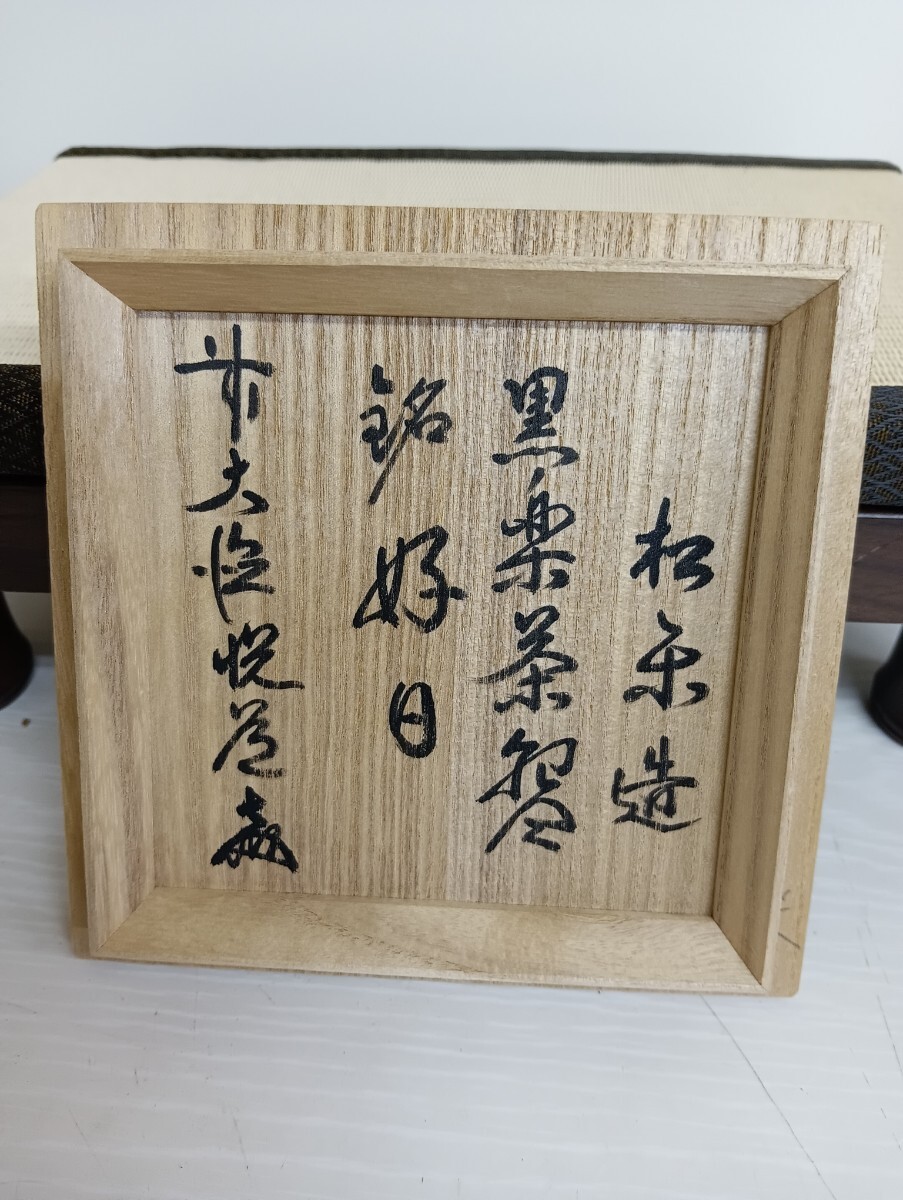 松楽造
黒楽茶盌
銘 好日
前大徳悦道